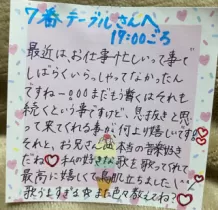 7番テーブルさんへ
17:00ごろ
最近は、お仕事忙しいって事で
しばらくいらっしゃってなかったん
ですねー まだもう暫くはそれも
続くという事ですけど、息抜きと思
って来てくれる事が何より嬉しいです
それと、お兄さん 本当の音楽好き
だね 私の好きな歌を歌ってくれて
最高に嬉しくて鳥肌立ちました
歌うますぎる☆また色々教えてね?